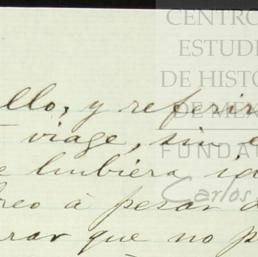 CENTRO
ESTUDI
DE HISTO
DE MÉX
FUNDA
Carlos
llo, y referir
viage, sin e
hubiera id
reo á pesar d
rar que no p